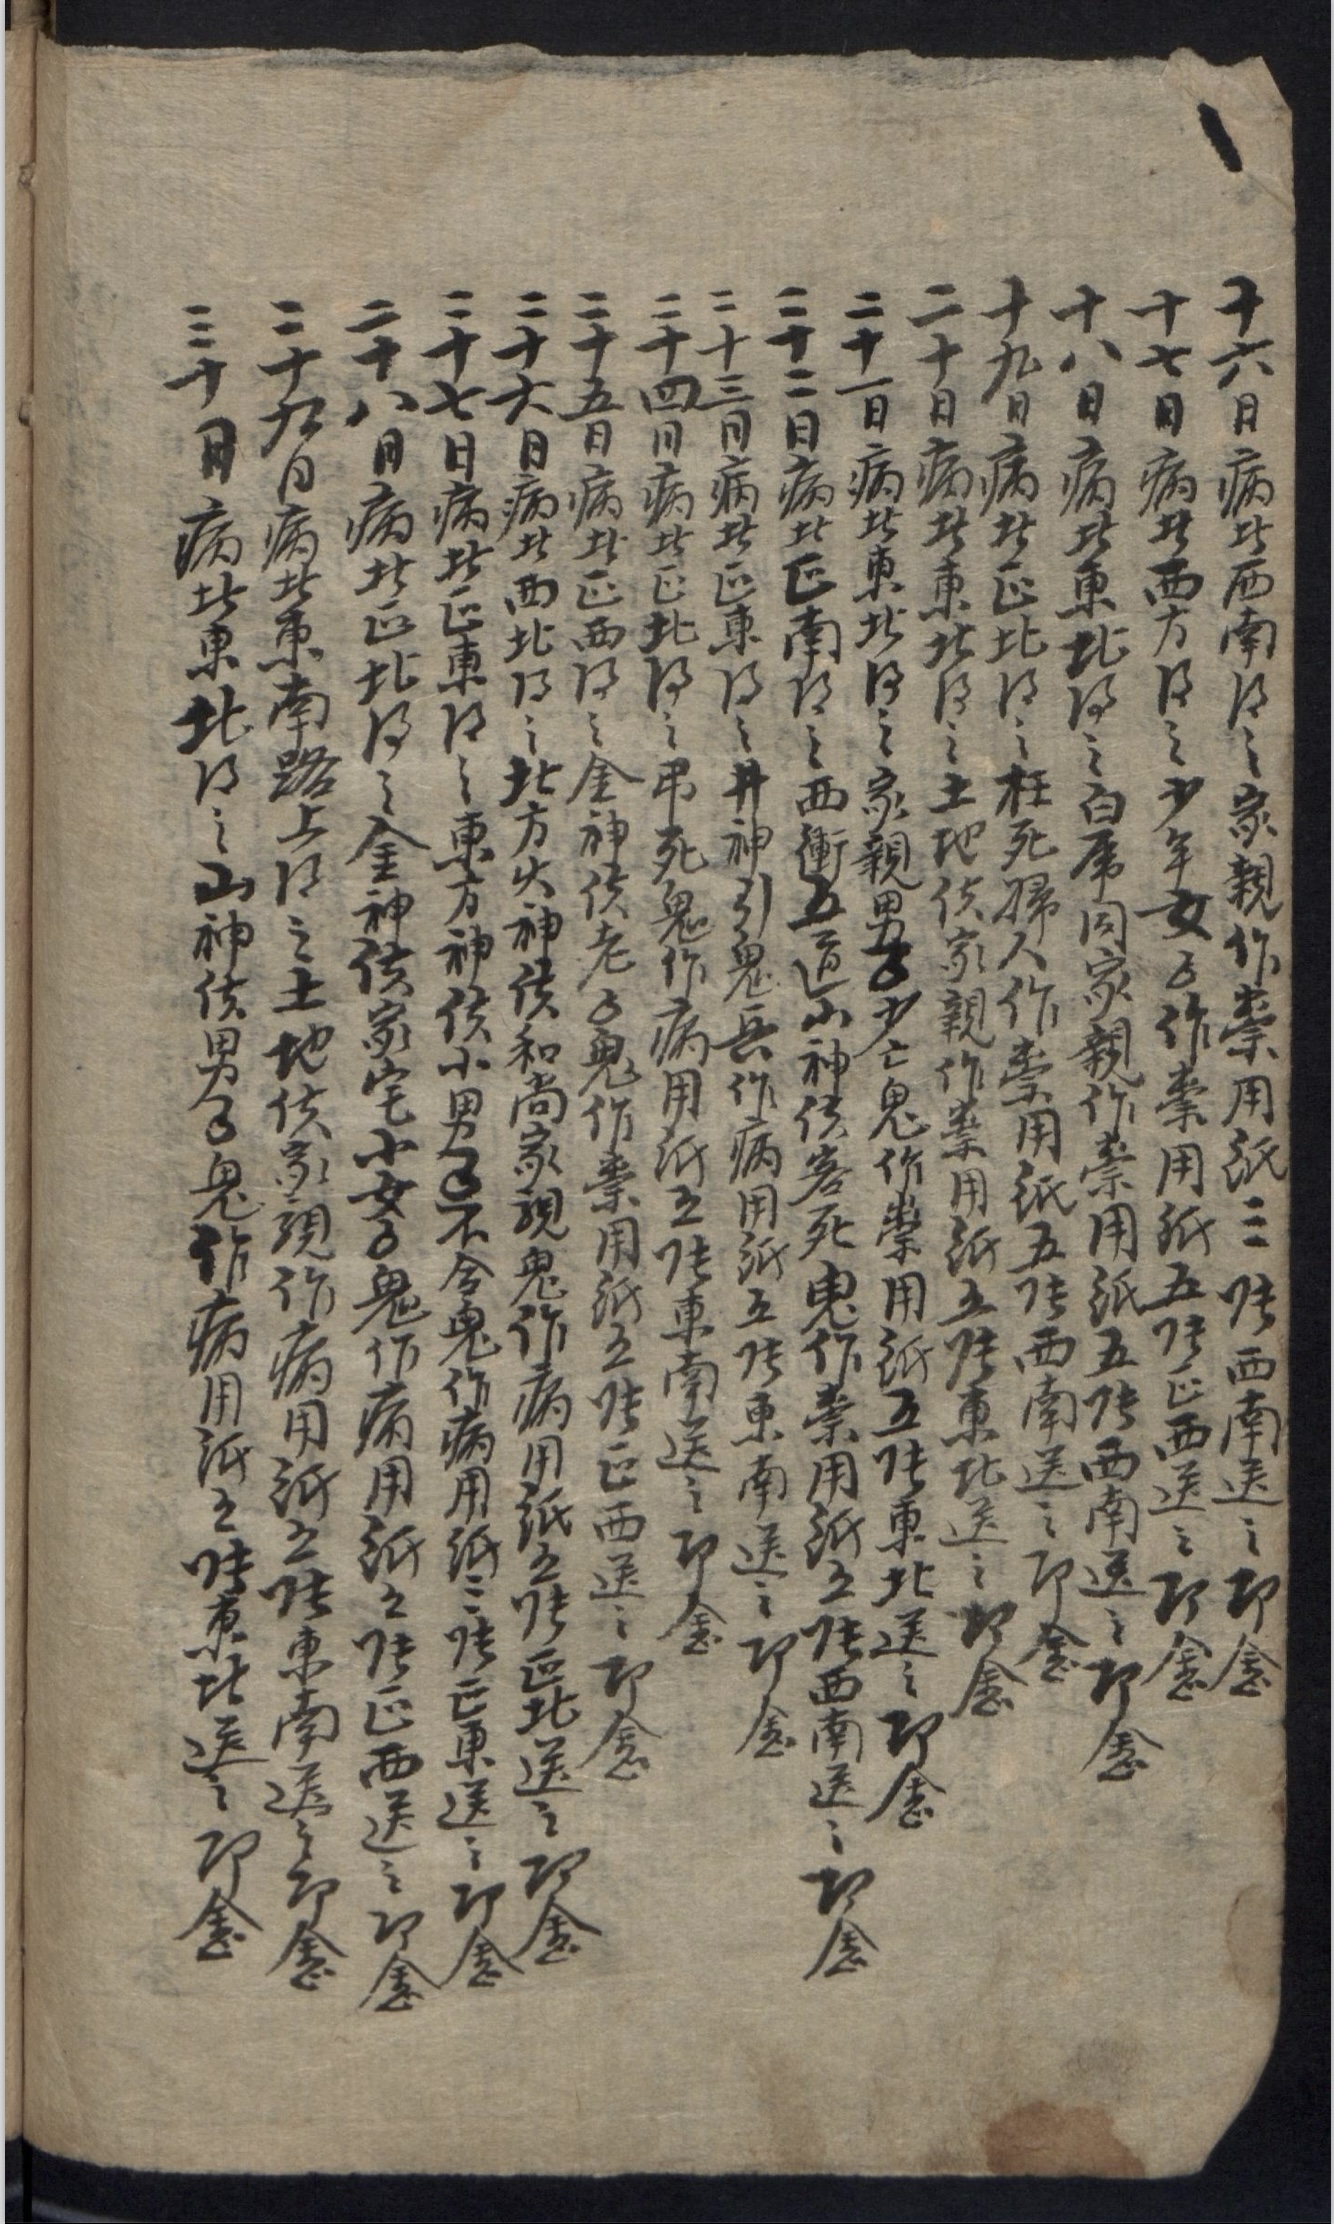 十六日病在西南得之家親作祟用紙三张西南送之即愈
十七日病在西方得之少年女子作祟用紙五张正西送之即愈
十八日病在東北得之白虎同家親作祟用紙五张西南送之即愈
十九日病在正北得之枉死婦人作祟用紙五张西南送之即愈
二十日病在東北得之土地使家親作祟用紙五张東北送之即愈
二十一日病在東北得之家親男子少亡鬼作祟用紙五张東北送之即愈
二十二日病在正南得之西衝五道山神使客死鬼作祟用紙五张西南送之即愈
二十三日病在正東得之井神引鬼兵作病用紙五张東南送之即愈
二十四日病在正北得之吊死鬼作病用紙五张東南送之即愈
二十五日病在正西得之金神使老子鬼作祟用紙五张正西送之即愈
二十六日病在西北得之北方火神使和尚家親鬼作病用紙五张正北送之即愈
二十七日病在正東得之東方神使小男子不令鬼作病用紙三张正東送之即愈
二十八日病在正北得之金神使家宅小女子鬼作病用紙五张正西送之即愈
二十九日病在東南路上得之土地使家親作病用紙五张東南送之即愈
三十日病在東北得之山神使男子鬼作病用紙五张東北送之即愈